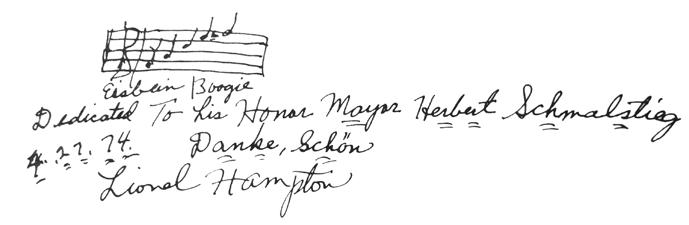 Eisbein Boogie
Dedicated To his Honor Mayor Herbert Schmalstieg
4.27.74. Danke, Schön
Lionel Hampton